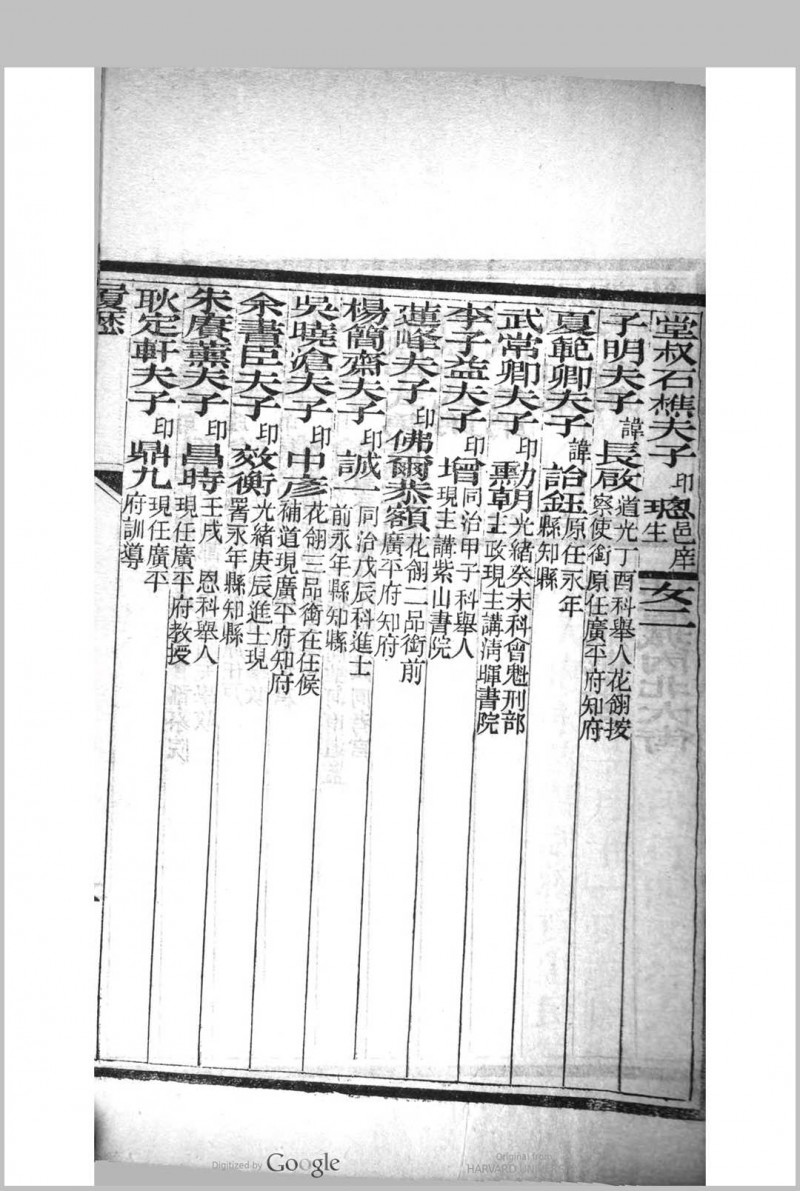 堂叔石樵夫子印璁邑庠生
女二
子明夫子諱長啟道光丁酉科舉人花翎按察使銜原任廣平府知府
夏範卿夫子諱詒鈺原任永年縣知縣
武常卿夫子印勳朝光緒癸未科會魁刑部主政現主講清暉書院
李子益夫子印增同治甲子科舉人現主講紫山書院
蓮峰夫子印佛爾恭額花翎二品銜前廣平府知府
楊簡齋夫子印誠一同治戊辰科進士前永年縣知縣
吳曉滄夫子印中彥花翎三品銜在任候補道現廣平府知府
余書臣夫子印效衡光緒庚辰進士現署永年縣知縣
朱賡薰夫子印昌時壬戌恩科舉人現任廣平府教授
耿定軒夫子印鼎九現任廣平府訓導
履歷
Digitized by Google
Original from
HARVARD UNIVERSITY